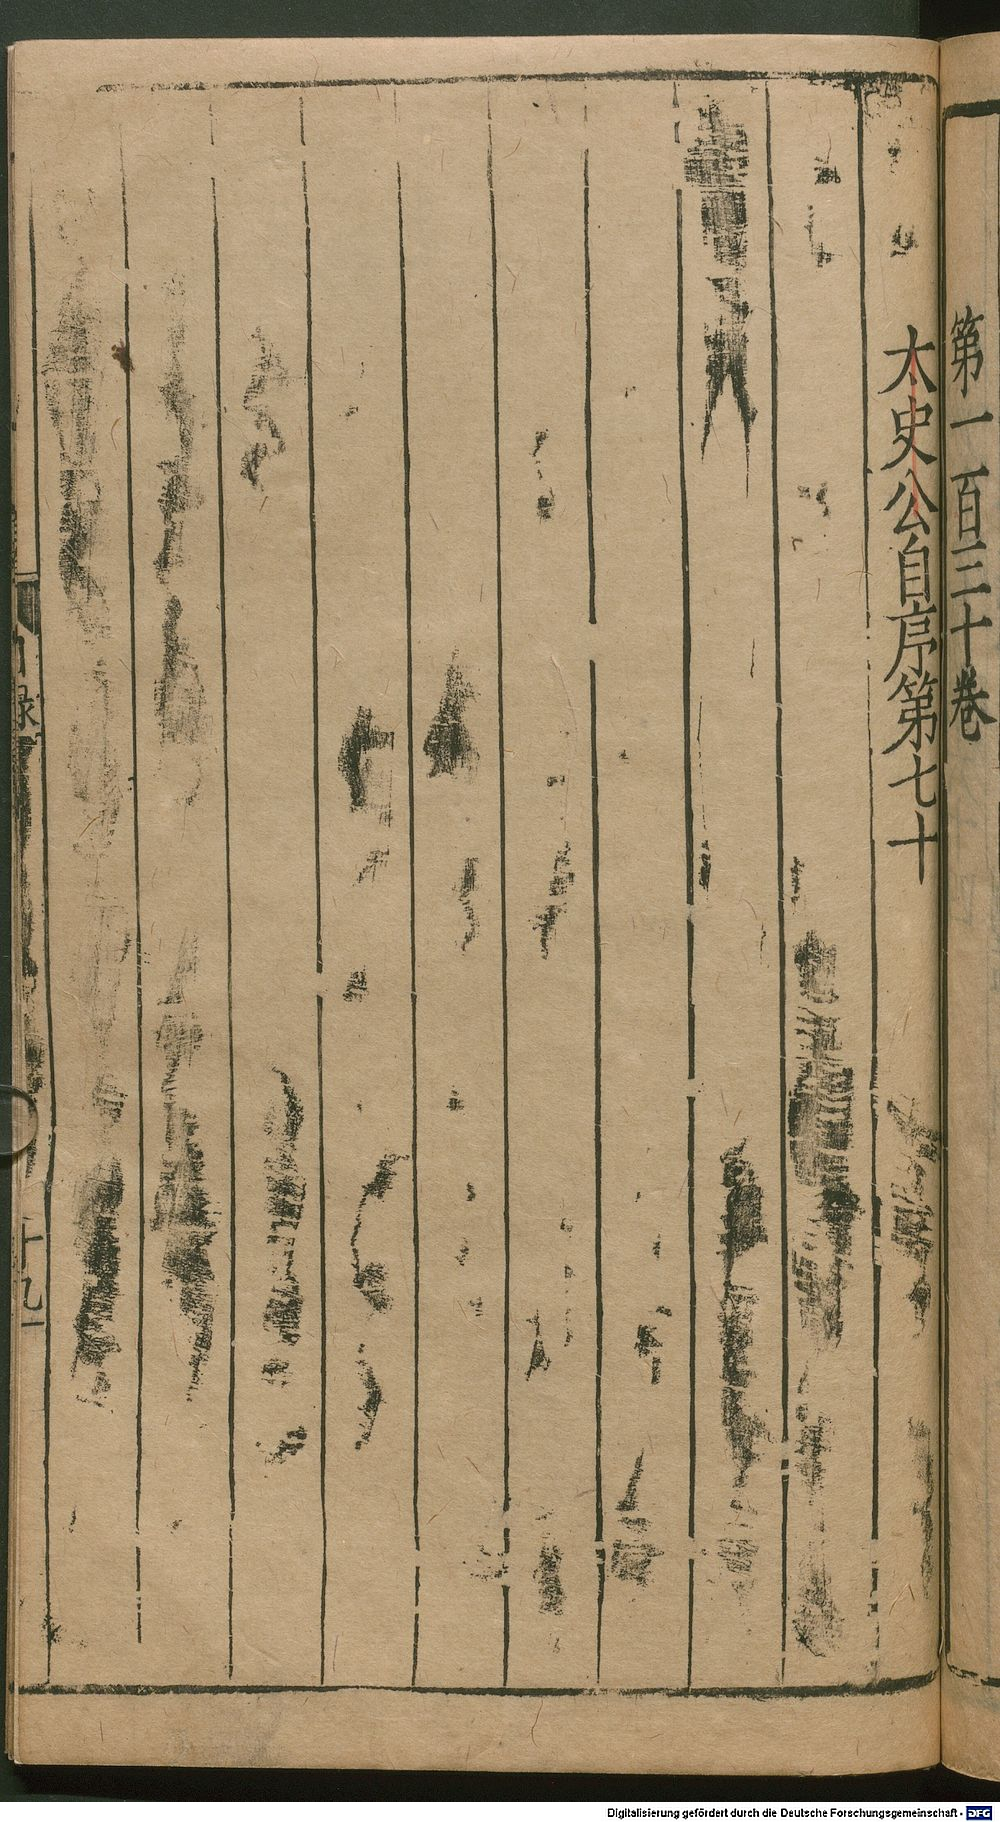 第一百三十卷
太史公自序第七十
目録
二十九
Digitalisierung gefördert durch die Deutsche Forschungsgemeinschaft - DFG